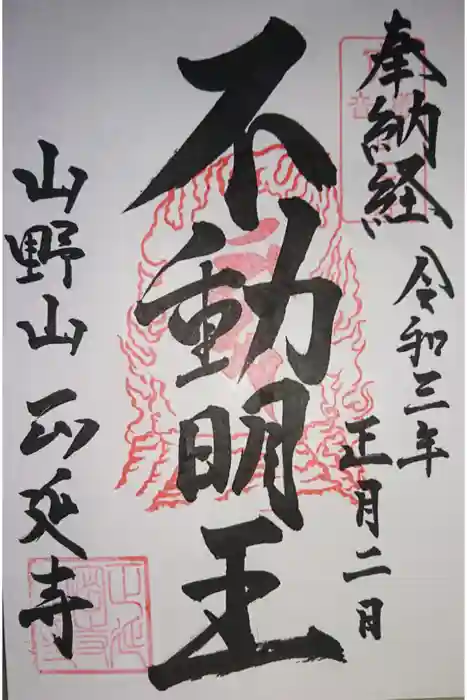 奉納経
令和三年
正月二日
不動明王
山野山 正延寺